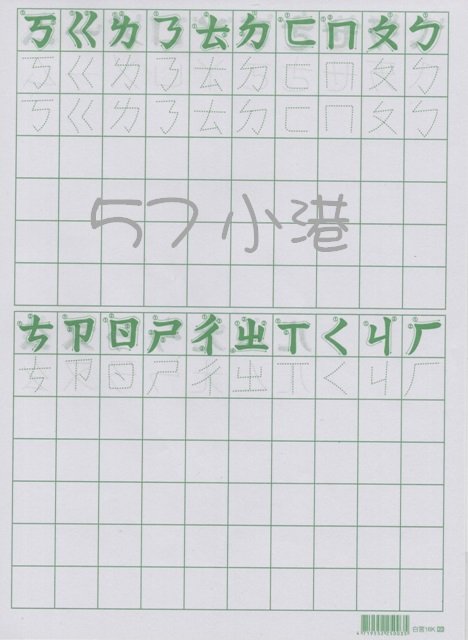 ㄎ ㄍ ㄌ ㄋ ㄊ ㄉ ㄈ ㄇ ㄆ ㄅ
ㄎ ㄍ ㄌ ㄋ ㄊ ㄉ ㄈ ㄇ ㄆ ㄅ
ㄎ ㄍ ㄌ ㄋ ㄊ ㄉ ㄈ ㄇ ㄆ ㄅ
57小港
ㄘ ㄗ ㄖ ㄕ ㄔ ㄓ ㄒ ㄑ ㄐ ㄏ
ㄘ ㄗ ㄖ ㄕ ㄔ ㄓ ㄒ ㄑ ㄐ ㄏ
16K